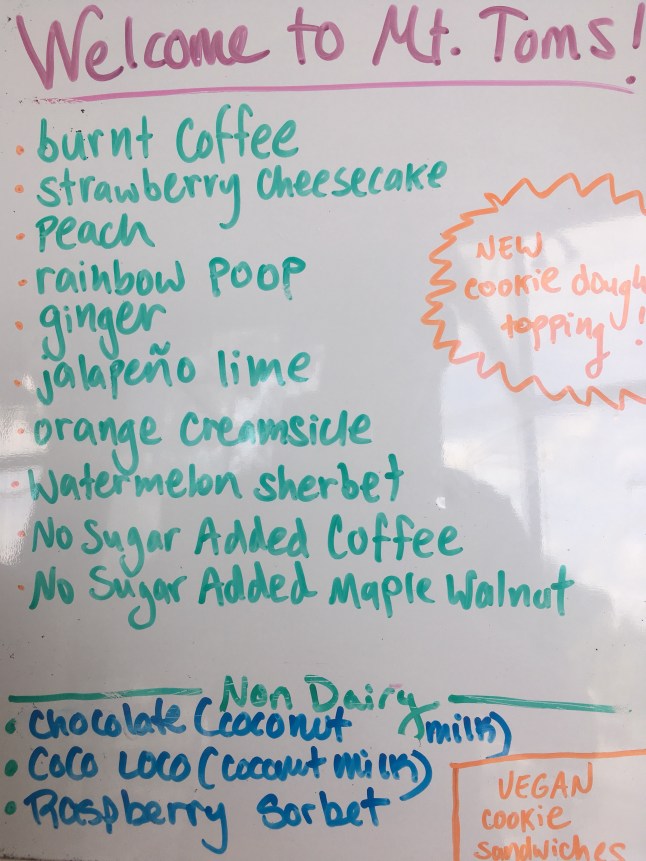 Welcome to Mt. Toms!
• burnt Coffee
• strawberry Cheesecake
• Peach
• rainbow Poop
• ginger
• jalapeño lime
• orange Creamsicle
• Watermelon sherbet
• No Sugar Added Coffee
• No Sugar Added Maple Walnut
NEW
cookie dough
topping!
Non Dairy
• Chocolate (coconut milk)
• Coco Loco (coconut milk)
• Raspberry Sorbet
VEGAN
cookie
sandwiches